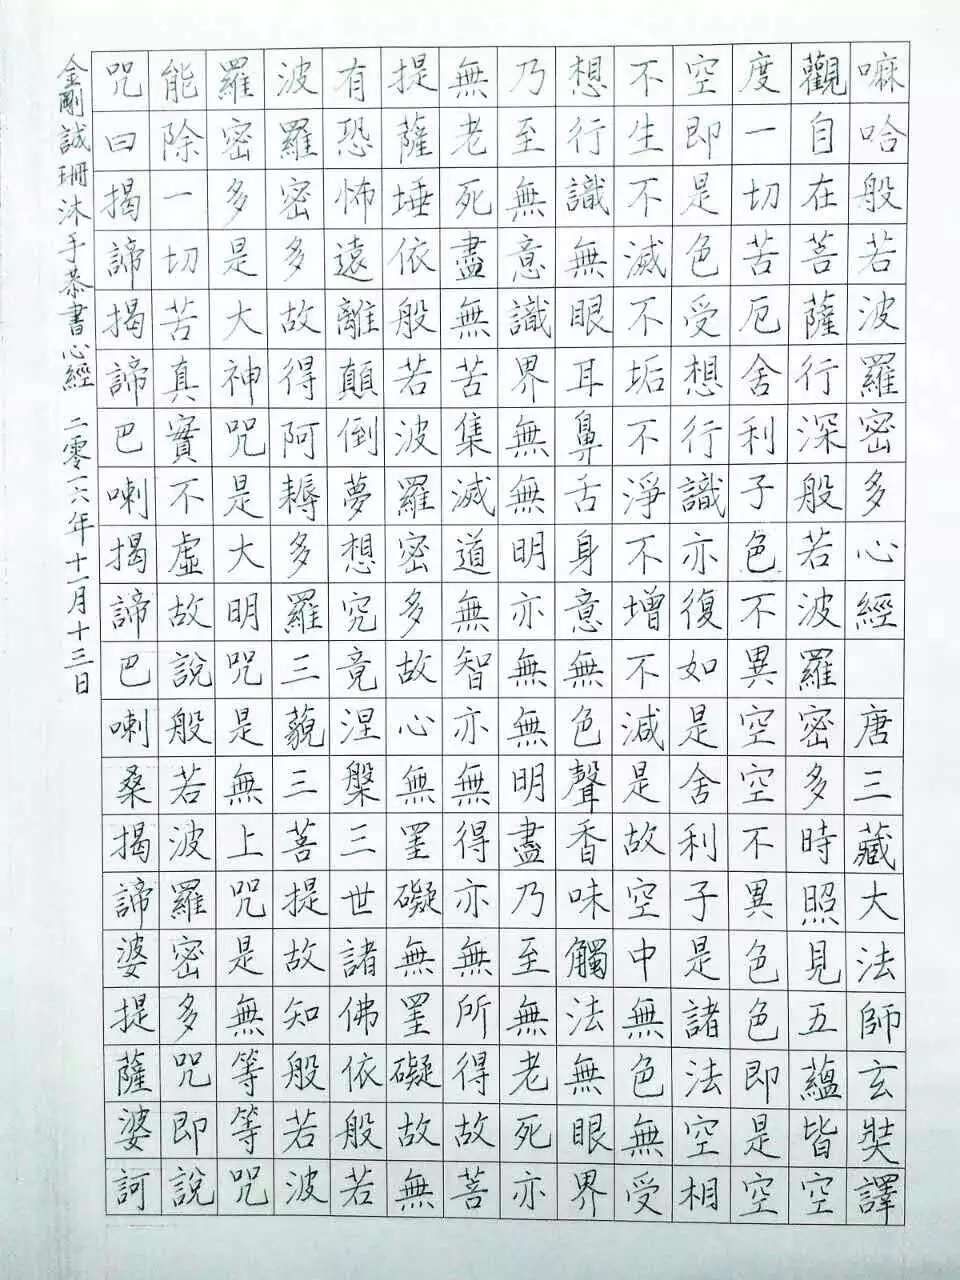 嘛哈般若波羅密多心經　唐三藏大法師玄奘譯
觀自在菩薩行深般若波羅密多時照見五蘊皆空
度一切苦厄舍利子色不異空空不異色色即是空
空即是色受想行識亦復如是舍利子是諸法空相
不生不滅不垢不淨不增不減是故空中無色無受
想行識無眼耳鼻舌身意無色聲香味觸法無眼界
乃至無意識界無無明亦無無明盡乃至無老死亦
無老死盡無苦集滅道無智亦無得亦無所得故菩
提薩埵依般若波羅密多故心無罣礙無罣礙故無
有恐怖遠離顛倒夢想究竟涅槃三世諸佛依般若
波羅密多故得阿耨多羅三藐三菩提故知般若波
羅密多是大神咒是大明咒是無上咒是無等等咒
能除一切苦真實不虛故說般若波羅密多咒即說
咒曰揭諦揭諦巴喇揭諦巴喇桑揭諦婆提薩婆訶
金剛誠珊沐手恭書心經　二零一六年十一月十三日